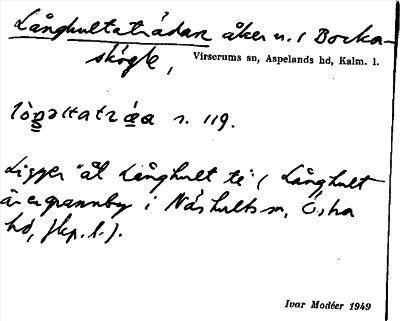 Långhultaträdan åker n. i Bocka-
skögle,
Virserums sn, Aspelands hd, Kalm. l.
n. 119.
Ligger "åt Långhult te" ( Långhult
är en grannby i Näshults sn, Östra
hd, Jkp. l.).
Ivar Modéer 1949